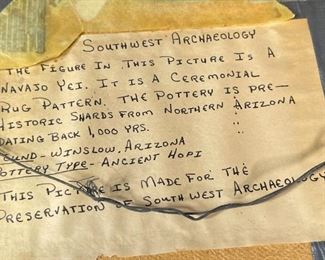 Southwest Archaeology
The Figure In This Picture Is A
Navajo Yei. It Is A Ceremonial
Rug Pattern. The Pottery Is Pre-
Historic Shards From Northern Arizona
Dating Back 1,000 Yrs.
Found - Winslow, Arizona
Pottery Type - Ancient Hopi
This Picture Is Made For The
Preservation of Southwest Archaeology